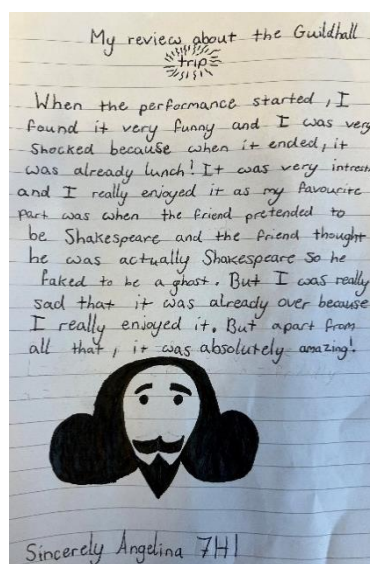 My review about the Guildhall
trip
When the performance started, I
found it very funny and I was very
shocked because when it ended, it
was already lunch! It was very intrest
and I really enjoyed it as my favourite
part was when the friend pretended to
be Shakespeare and the friend thought
he was actually Shakespeare so he
faked to be a ghost. But I was really
sad that it was already over because
I really enjoyed it. But apart from
all that, it was absolutely amazing!
Sincerely Angelina 7H1